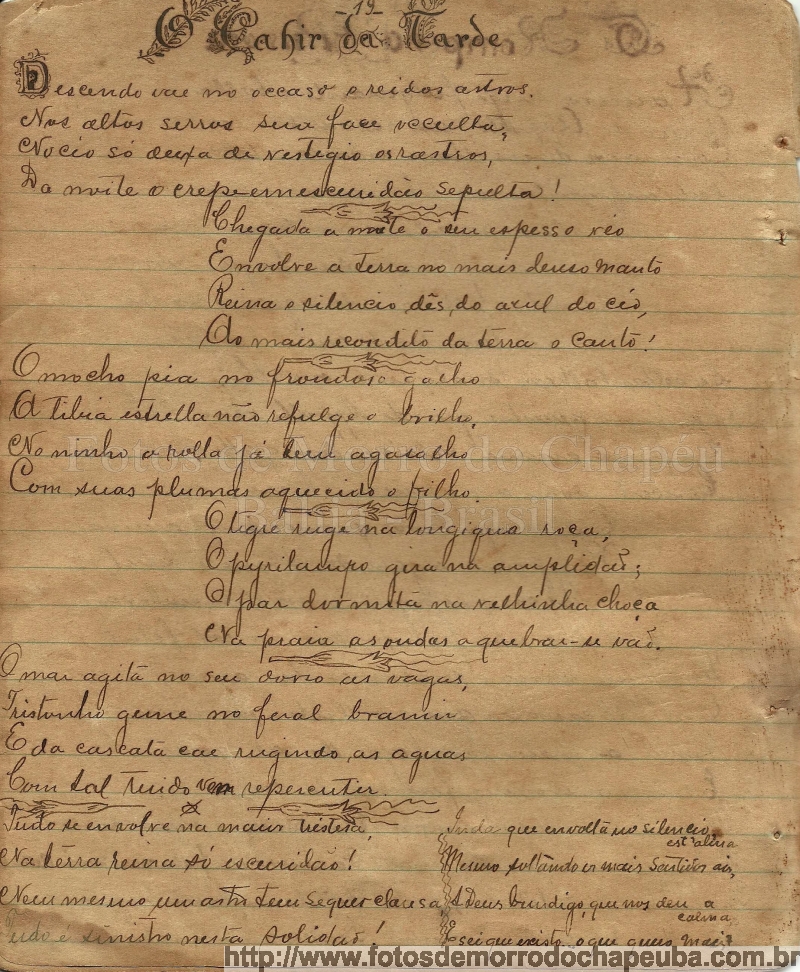 -19-
O Cahir da Tarde
Descendo vae no occaso o rei dos astros.
Nos altos serros sua face occulta,
No céo só deixa de vestigio os rastros,
Da noite o crepe em escuridão sepulta!
Chegada a noite o seu espesso véo
Envolve a terra no mais denso manto
Reina o silencio, dês, do azul do céo,
Ao mais recondito da terra o canto!
O mocho pia no frondoso galho
A tibia estrella não refulge o brilho,
No ninho a rolla já tem agasalho
Com suas plumas aquecido o filho.
O tigre ruge na longiqua roça,
O pyrilampo gira na amplidão;
O par dormita na velhinha choça
Na praia as ondas a quebrar-se vão.
O mar agita no seu dorso as vagas,
Tristonho geme no feral bramir
E da cascata cae rugindo, as aguas
Com tal ruido vem repercutir.
Tudo se envolve na maior tristesa,
Na terra reina só escuridão!
Nem mesmo um astro tem sequer
Tudo é sinistro nesta solidão!
Inda que envolta no silencio
est'alma
Mesmo soltando os mais sentidos ais,
A Deus bemdigo, que nos deu a
calma
E sei que existe, o que quero mais?
Fotos de Morro do Chapéu
Bahia - Brasil
http://www.fotosdemorrodochapeuba.com.br